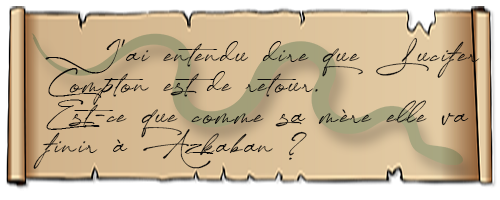 J'ai entendu dire que Lucifer
Compton est de retour.
Est-ce que comme sa mère elle va
finir à Azkaban ?